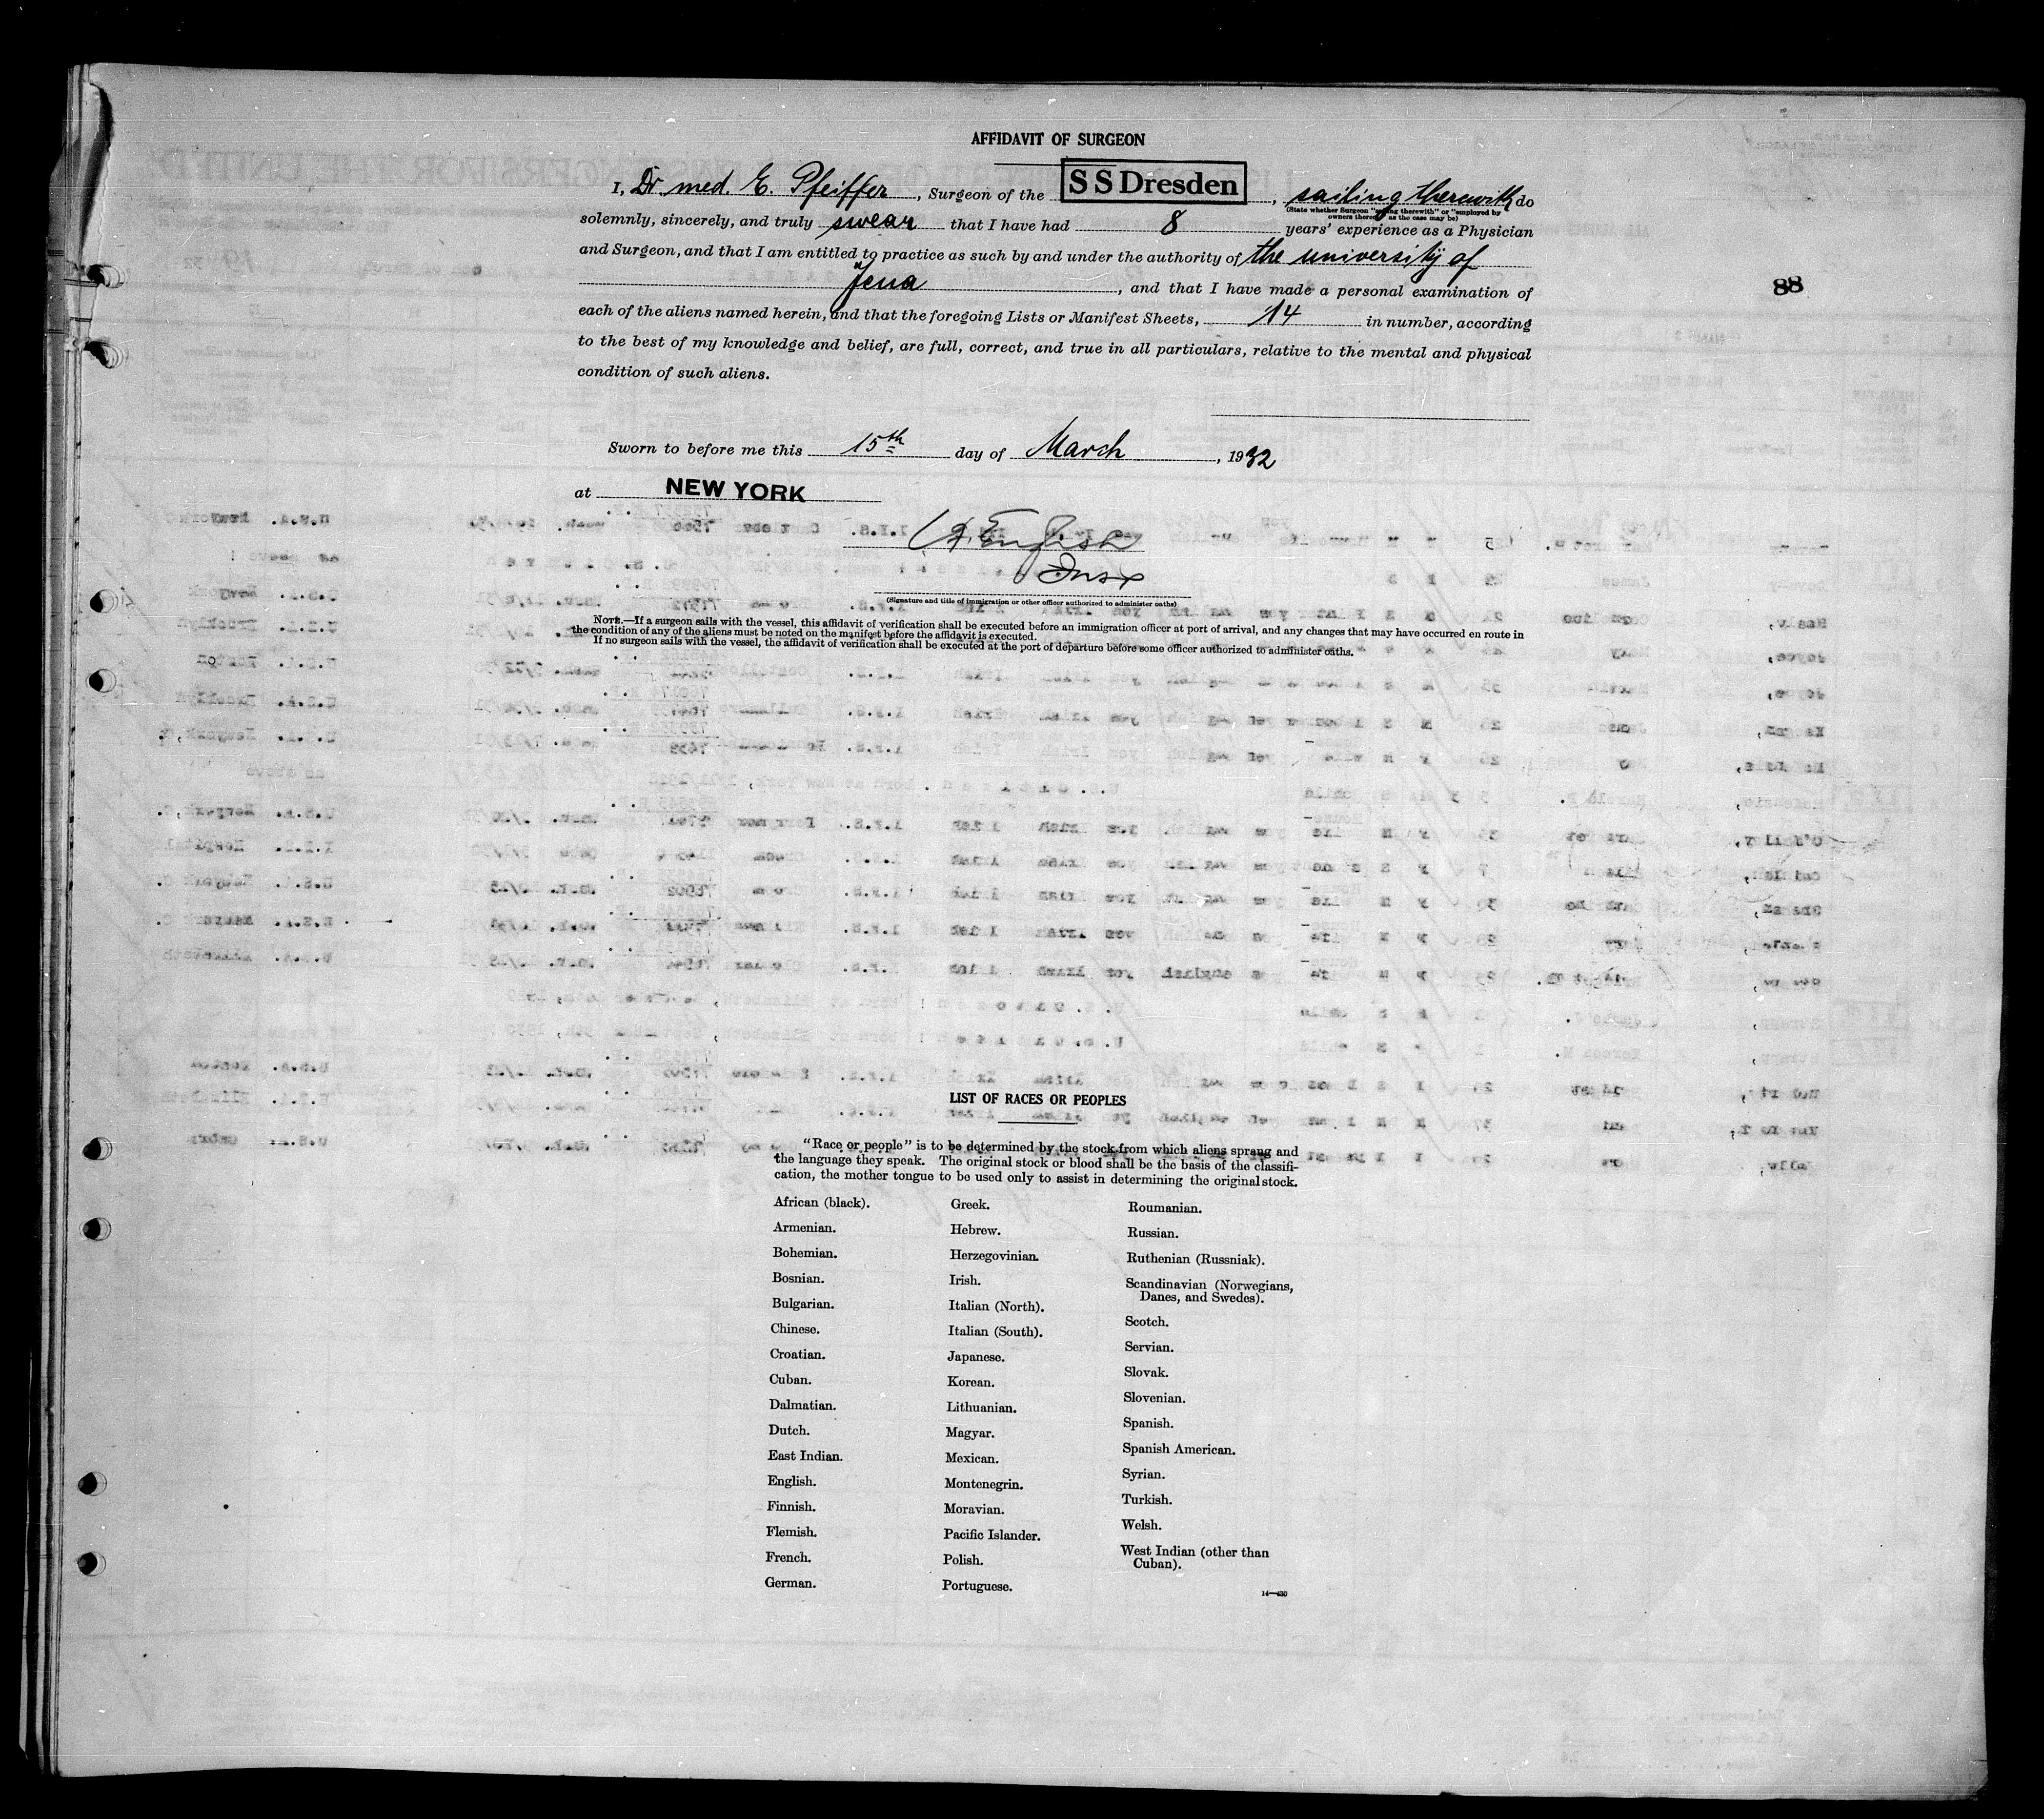 AFFIDAVIT OF SURGEON
I, Dr med. E. Pfeiffer, Surgeon of the SS Dresden, sailing therewith do
(State whether Surgeon "sailing therewith" or "employed by
owners thereof," as the case may be)
solemnly, sincerely, and truly swear that I have had 8 years' experience as a Physician
and Surgeon, and that I am entitled to practice as such by and under the authority of the university of
Jena, and that I have made a personal examination of
88
each of the aliens named herein, and that the foregoing Lists or Manifest Sheets, 14 in number, according
to the best of my knowledge and belief, are full, correct, and true in all particulars, relative to the mental and physical
condition of such aliens.
Sworn to before me this 15th day of March, 1932
at NEW YORK
English
Insp
(Signature and title of immigration or other officer authorized to administer oaths)
NOTE.—If a surgeon sails with the vessel, this affidavit of verification shall be executed before an immigration officer at port of arrival, and any changes that may have occurred en route in
the condition of any of the aliens must be noted on the manifest before the affidavit is executed.
If no surgeon sails with the vessel, the affidavit of verification shall be executed at the port of departure before some officer authorized to administer oaths.
LIST OF RACES OR PEOPLES
"Race or people" is to be determined by the stock from which aliens sprang and
the language they speak. The original stock or blood shall be the basis of the classifi-
cation, the mother tongue to be used only to assist in determining the original stock.
African (black).
Armenian.
Bohemian.
Bosnian.
Bulgarian.
Chinese.
Croatian.
Cuban.
Dalmatian.
Dutch.
East Indian.
English.
Finnish.
Flemish.
French.
German.
Greek.
Hebrew.
Herzegovinian.
Irish.
Italian (North).
Italian (South).
Japanese.
Korean.
Lithuanian.
Magyar.
Mexican.
Montenegrin.
Moravian.
Pacific Islander.
Polish.
Portuguese.
Roumanian.
Russian.
Ruthenian (Russniak).
Scandinavian (Norwegians,
Danes, and Swedes).
Scotch.
Servian.
Slovak.
Slovenian.
Spanish.
Spanish American.
Syrian.
Turkish.
Welsh.
West Indian (other than
Cuban).
14—430